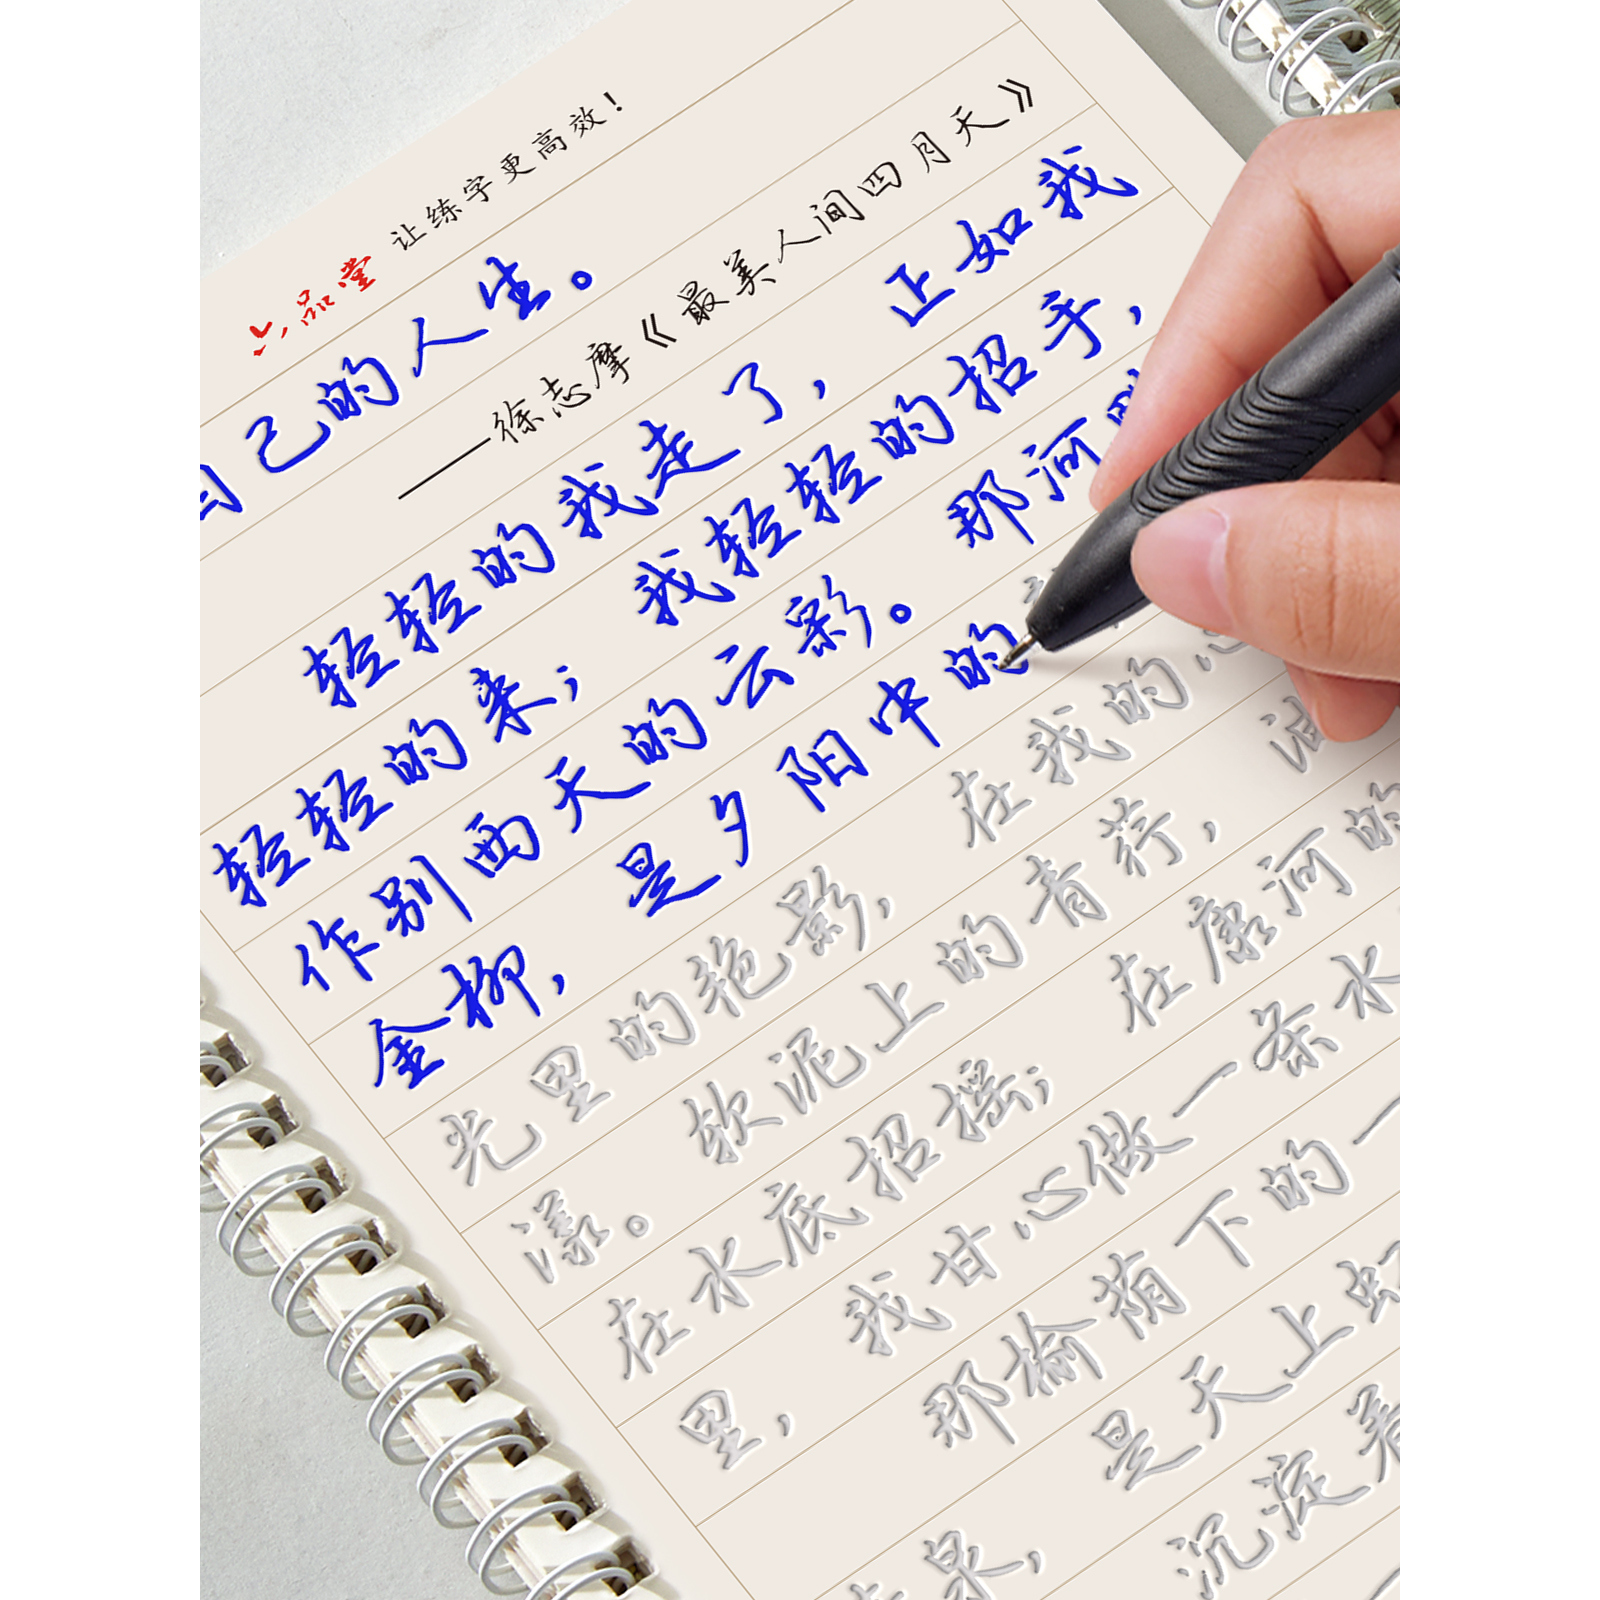 六品堂 让练字更高效！
自己的人生。
——徐志摩《最美人间四月天》
轻轻的我走了， 正如我
轻轻的来； 我轻轻的招手，
作别西天的云彩。 那河畔
金柳， 是夕阳中的
光里的艳影， 在我的心
漾。 软泥上的青荇， 油
在水底招摇； 在康河的
里， 我甘心做一条水
那榆荫下的一
是天上虹
泉， 沉淀着